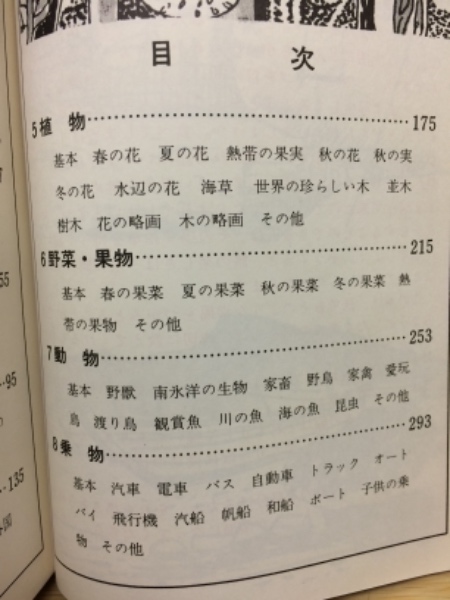 目 次
5植 物……………………………………175
基本 春の花 夏の花 熱帯の果実 秋の花 秋の実
冬の花 水辺の花 海草 世界の珍らしい木 並木
樹木 花の略画 木の略画 その他
6野菜・果物……………………………………215
基本 春の果菜 夏の果菜 秋の果菜 冬の果菜 熱
帯の果物 その他
7動 物……………………………………253
基本 野獣 南氷洋の生物 家畜 野鳥 家禽 愛玩
鳥 渡り鳥 観賞魚 川の魚 海の魚 昆虫 その他
8乗 物……………………………………293
基本 汽車 電車 バス 自動車 トラック オート
バイ 飛行機 汽船 帆船 和船 ボート 子供の乗
物 その他
55
95
135